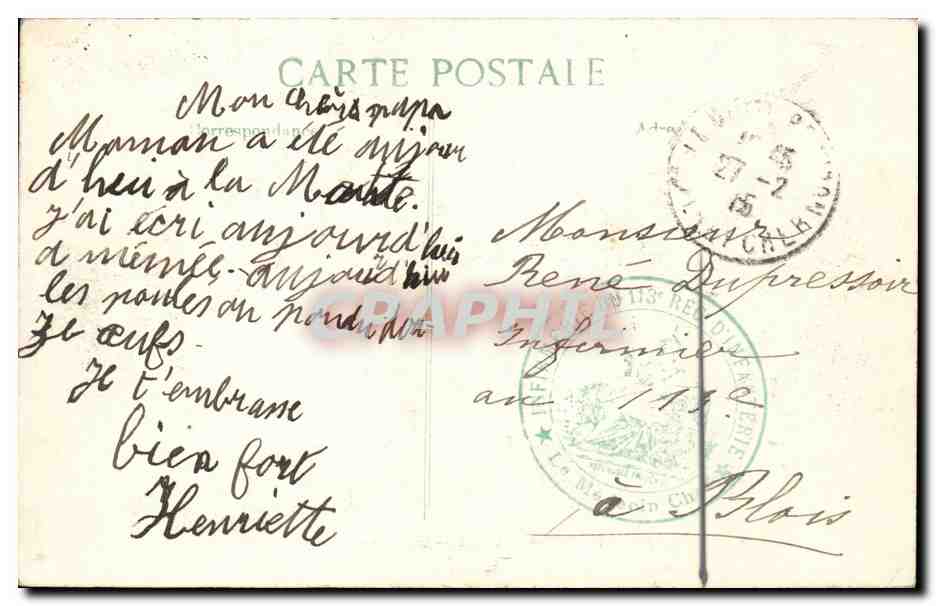 CARTE POSTALE
Correspondance
Mon chère papa
Maman a été aujour
d'heui à la Moutte.
j'ai écri aujourd'hui
a mémée. aujourd'hui
les poules on pondu dou
ze œufs.
Je t'embrasse
bien fort
Henriette
Monsieur
René Dupressoir
Infirmier
au 113e
à Blois
27 - 2
15
LOIR ET CHER
DU 113e REG. D'INFANTERIE
Le Médecin Ch
CPAPHIL